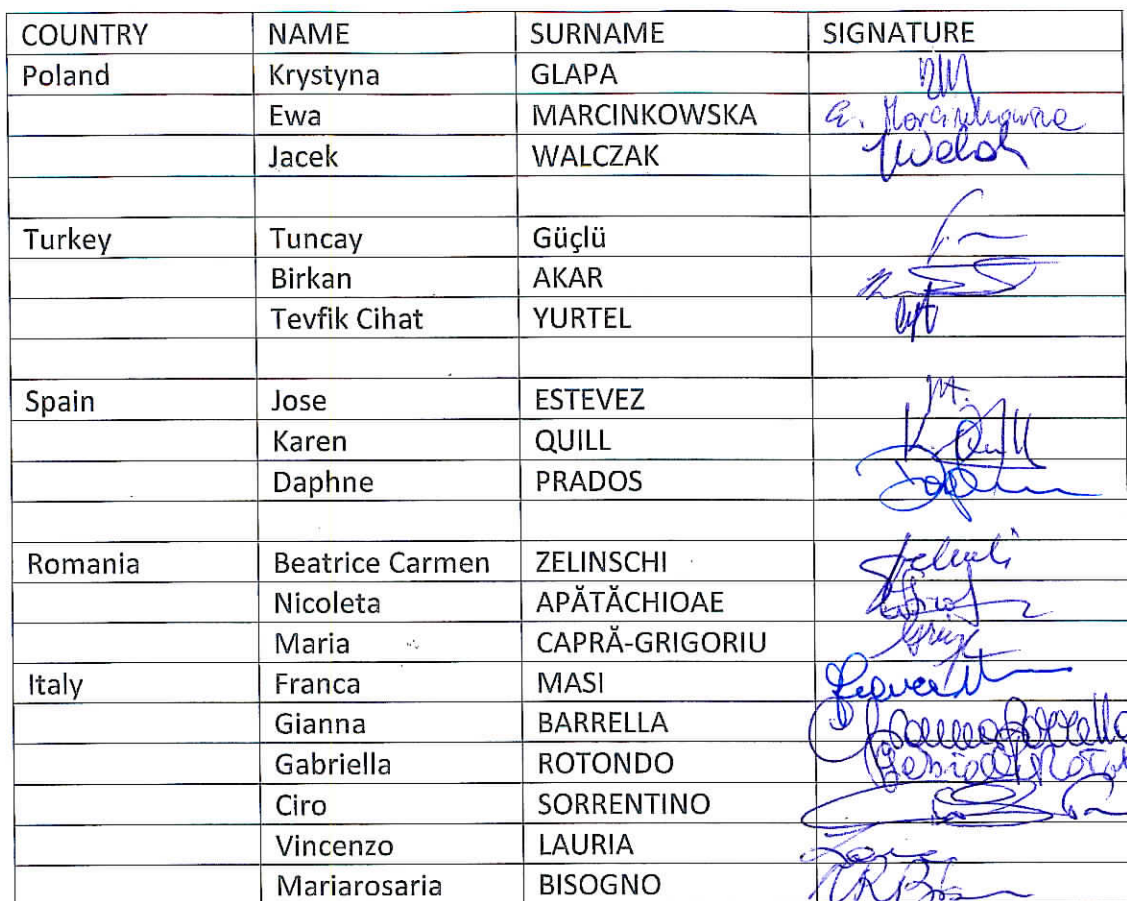 COUNTRY NAME SURNAME SIGNATURE
Poland Krystyna GLAPA
Ewa MARCINKOWSKA E. Marcinkowska
Jacek WALCZAK
Turkey Tuncay Güçlü
Birkan AKAR
Tevfik Cihat YURTEL
Spain Jose ESTEVEZ
Karen QUILL K. Quill
Daphne PRADOS
Romania Beatrice Carmen ZELINSCHI
Nicoleta APĂTĂCHIOAE
Maria CAPRĂ-GRIGORIU
Italy Franca MASI
Gianna BARRELLA
Gabriella ROTONDO
Ciro SORRENTINO
Vincenzo LAURIA
Mariarosaria BISOGNO